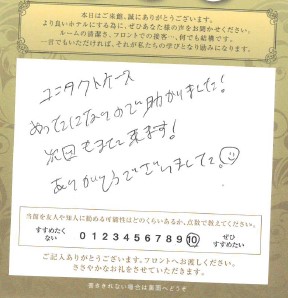 本日はご来館、誠にありがとうございます。
より良いホテルにする為に、ぜひあなた様の声をお聞かせください。
ルームの清潔さ、フロントでの接客…、何でも結構です。
一言でもいただければ、それが私たちの学びとなり励みになります。
コンタクトケース
めったにないので助かりました!
次回もまた来ます!
ありがとうございました。
当館を友人や知人に勧める可能性はどのくらいあるか、点数で教えてください。
すすめたくない 0 1 2 3 4 5 6 7 8 9 10 ぜひすすめたい
ご記入ありがとうございます。フロントへお渡しください。
ささやかなお礼をさせていただきます。
書ききれない場合は裏面へどうぞ